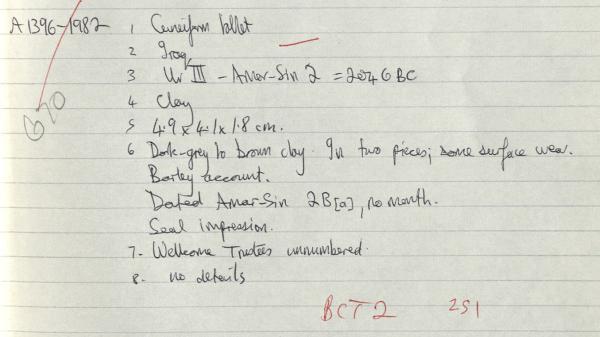 A1396-1982 1 Cuneiform tablet
2 Iraq
3 Ur III - Amar-Sin 2 = 2046 BC
4 Clay
5 4.9 x 4.1 x 1.8 cm.
6 Dark-grey to brown clay. In two pieces; some surface wear.
Barley account.
Dated Amar-Sin 2B[a], no month.
Seal impression.
7. Wellcome Trustees unnumbered.
8. no details
BCT 2 251